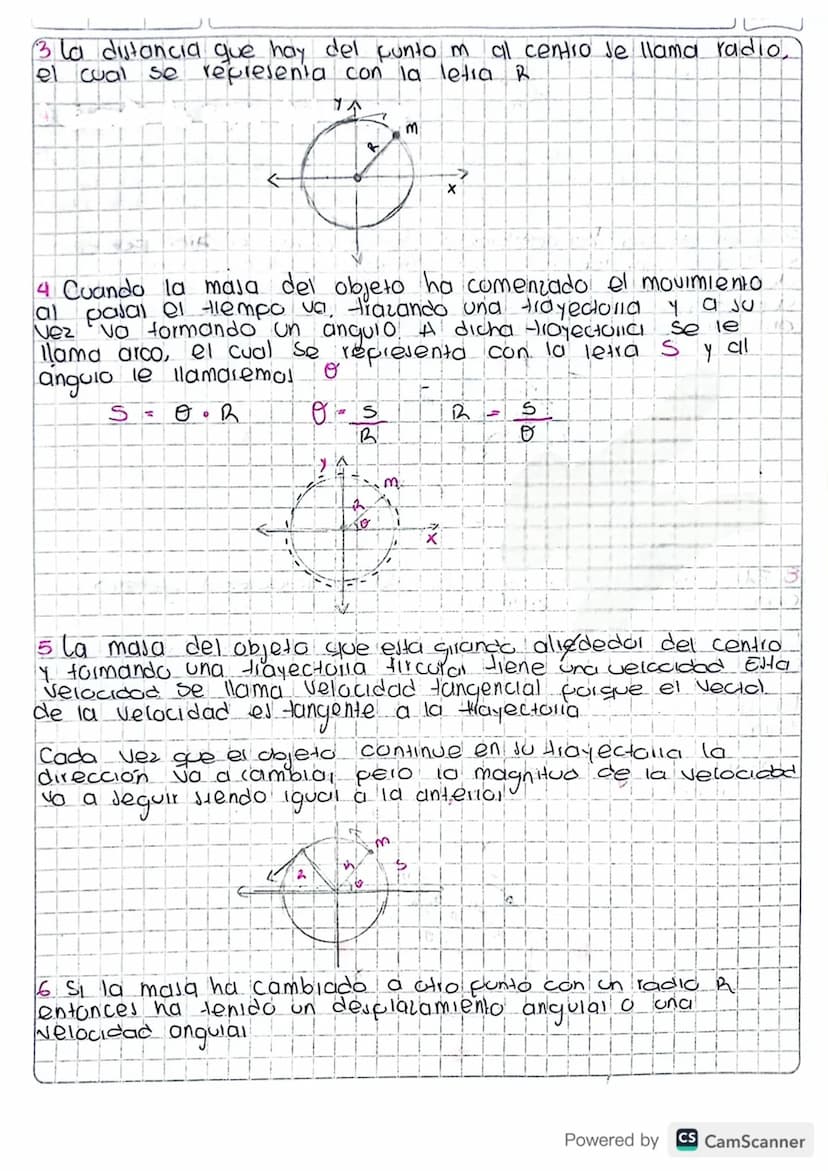 3 La distancia que hay del punto m al centro se llama radio,
el cual se representa con la letra R
y
m
R
x
4 Cuando la masa del objeto ha comenzado el movimiento
al pasar el tiempo va, trazando una trayectoria y a su
vez va formando un angulo. A dicha trayectoria se le
llama arco, el cual se representa con la letra S y al
angulo le llamaremos θ
S = θ • R θ = S/R R = S/θ
y
m
R
θ
x
5 La masa del objeto que esta girando alrededor del centro
y formando una trayectoria circular tiene una velocidad Esta
velocidad se llama velocidad tangencial porque el vector
de la velocidad es tangente a la trayectoria
Cada vez que el objeto continue en su trayectoria la
dirección va a cambiar, pero la magnitud de la velocidad
va a seguir siendo igual a la anterior
m
S
θ
6 Si la masa ha cambiado a otro punto con un radio R
entonces ha tenido un desplazamiento angular o una
velocidad angular
Powered by CS CamScanner